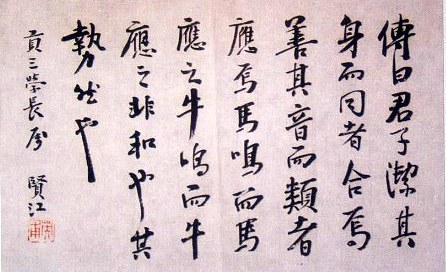 傳曰君子潔其
身而同者合焉
善其音而類者
應焉馬鳴而馬
應之牛鳴而牛
應之非和也其
勢然也
貢三學長 賢江